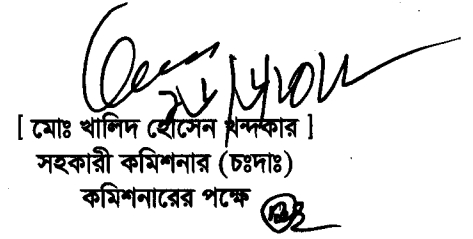 [ মোঃ খালিদ হোসেন খন্দকার ]
সহকারী কমিশনার (চঃদাঃ)
কমিশনারের পক্ষে